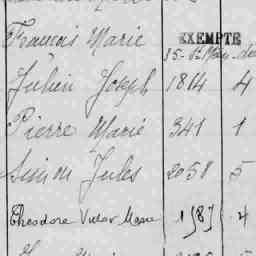 Francois Marie EXEMPTE
Julien Joseph 1814 4
Pierre Marie 341 1
Simon Jules 2058 5
Theodore Victor Marie 1587 4